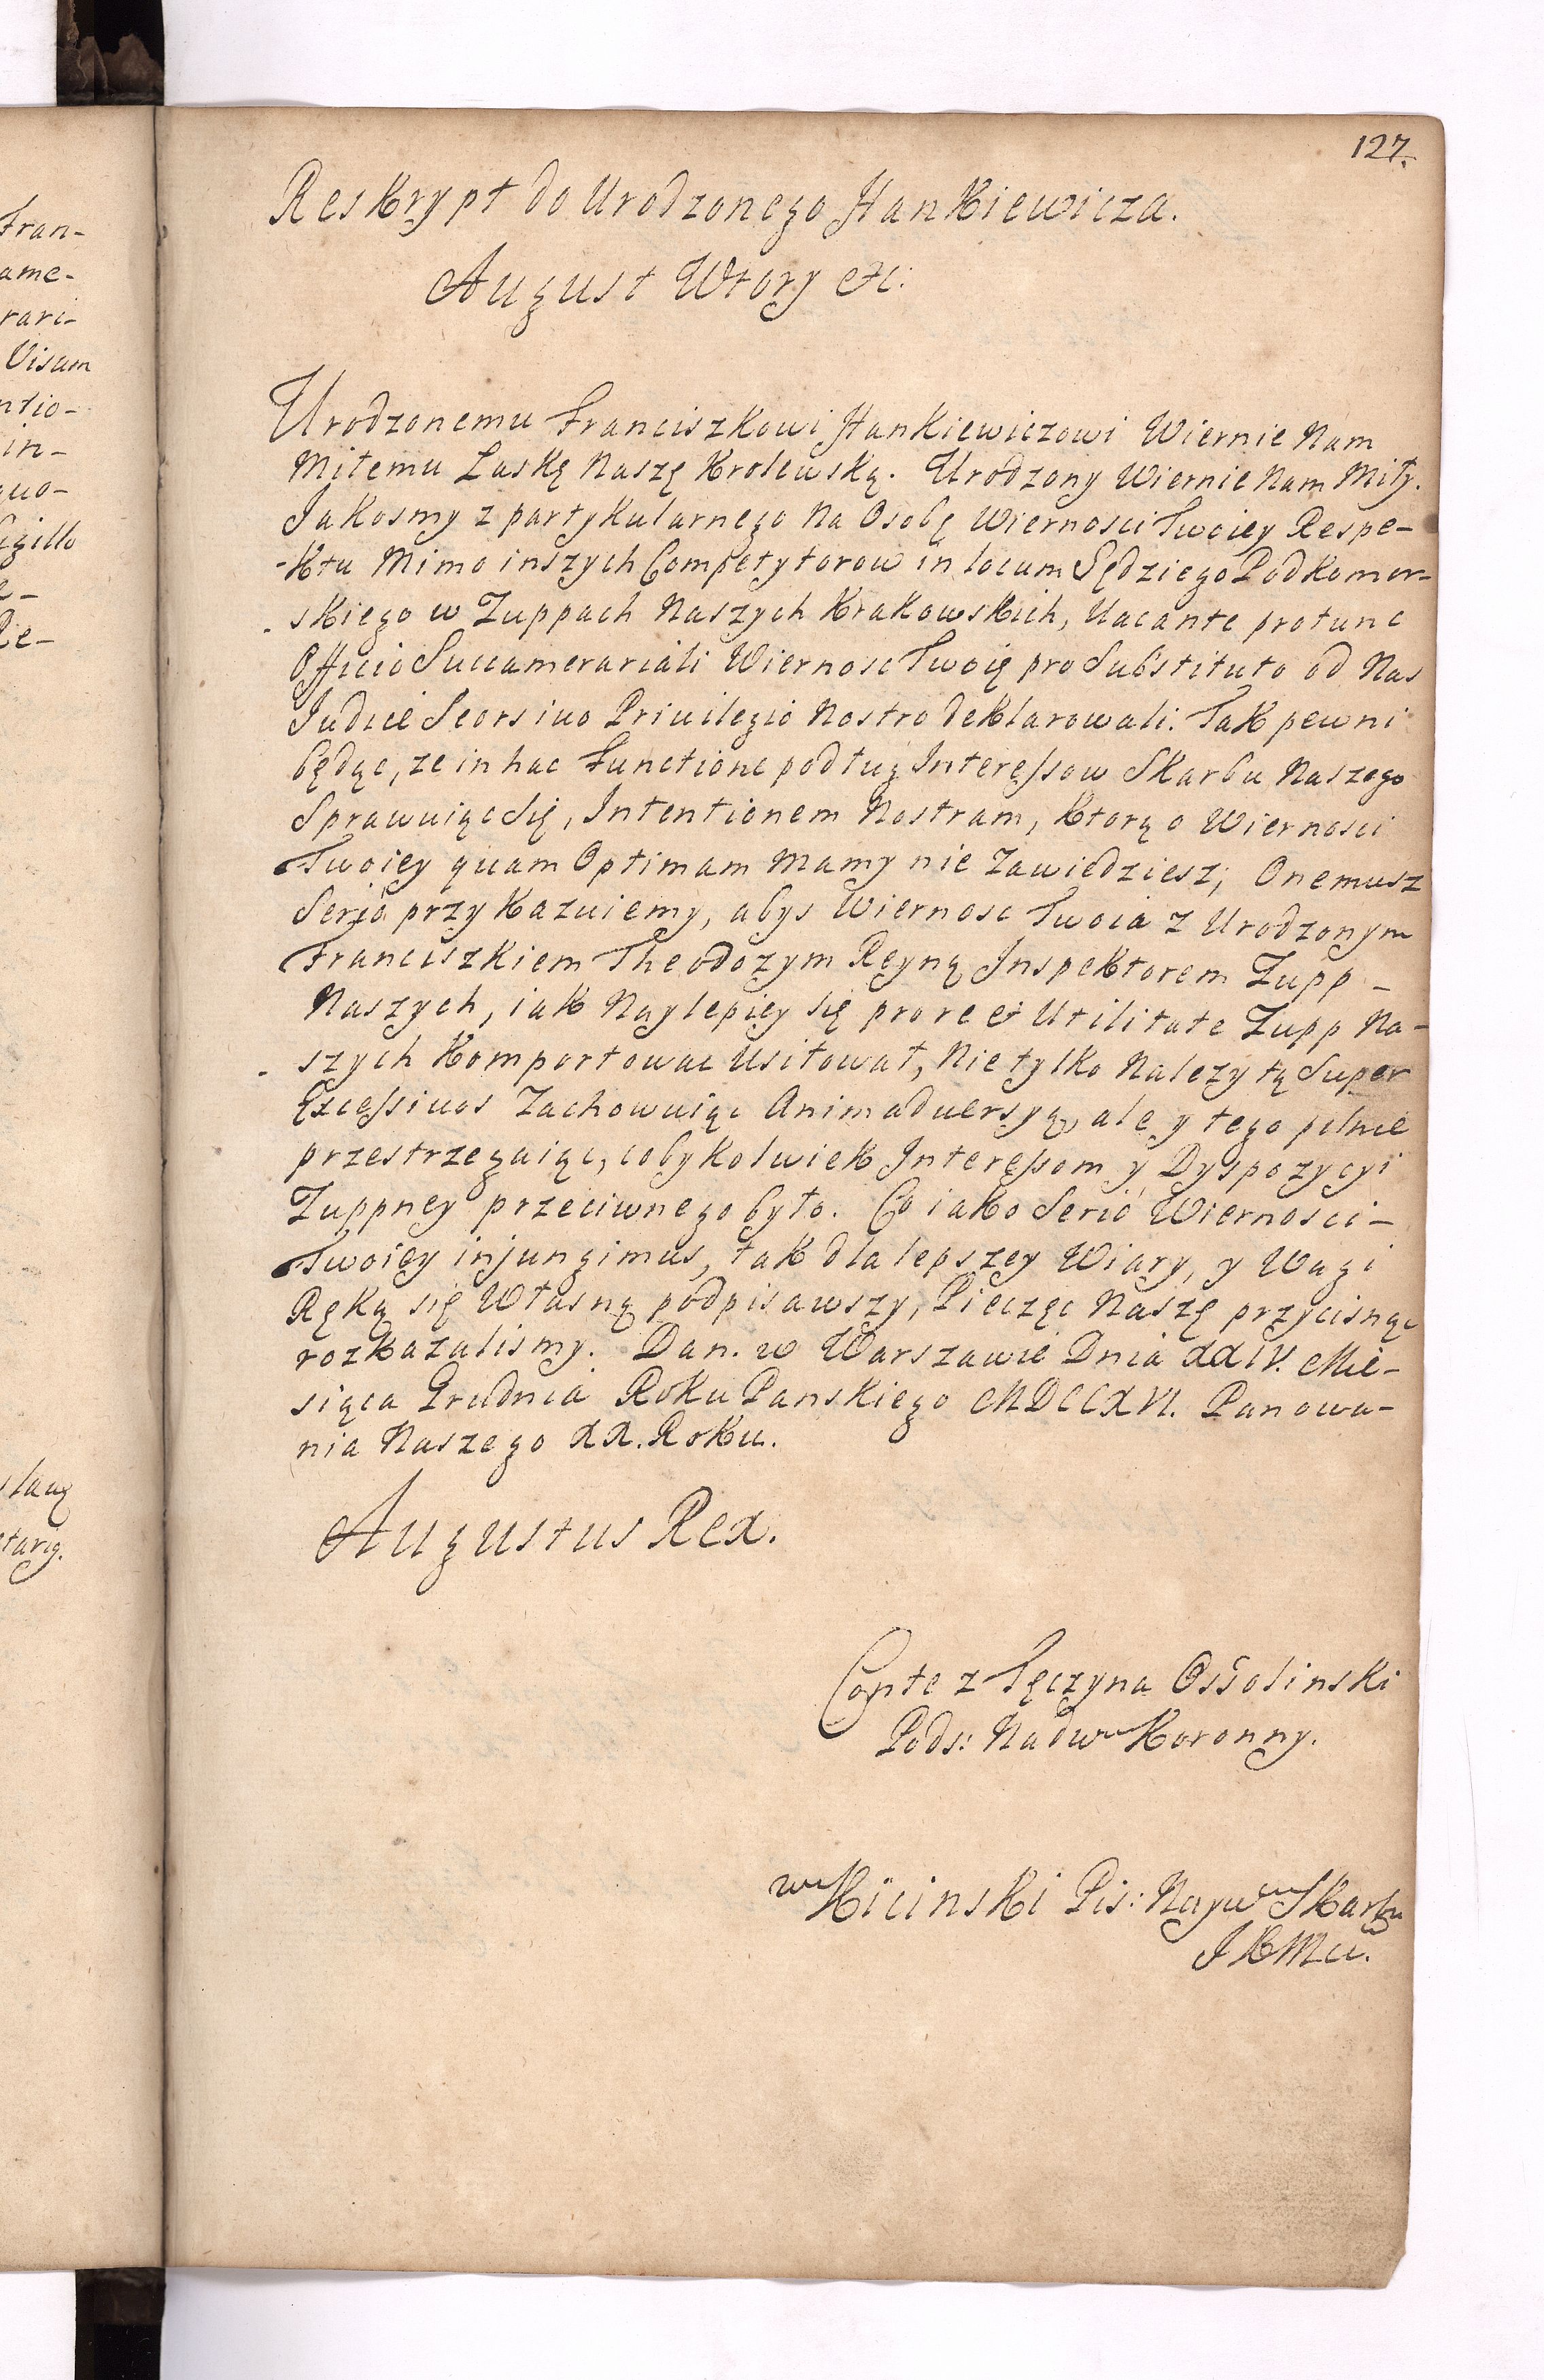 127.
Fran-
ame-
rari-
Visam
ntio-
in-
quo-
igillo
Re-
Reskrypt do Urodzonego Hankiewicza.
August Wtory etc:
Urodzonemu Franciszkowi Hankiewiczowi Wiernie Nam
Miłemu Łaskę Naszę Krolewską. Urodzony Wiernie Nam Miły.
Jakosmy z partykularnego na Osobę Wiernosci Twoiey Respe-
-ktu Mimo inszych Competytorow in locum Sędziego Podkomor-
skiego w Zuppach Naszych Krakowskich, Vacante protunc
Officio Succamerariali Wiernosc Twoię pro Substituto od Nas
Judice Seorsivo Privilegio Nostro deklarowali. Tak pewni
będąc, ze in hac Functione podług Interessow Skarbu Naszego
Sprawuiąc Się, Intentionem Nostram, ktorą o Wiernosci
Twoiey quam Optimam Mamy nie Zawiedziesz; Onemusz
Serio przykazuiemy, abys Wiernosc Twoia z Urodzonym
Franciszkiem Theodozym Reyną Inspektorem Zupp-
Naszych, iak Naylepiey się pro re et Utilitate Zupp Na-
szych Komportowac Usitował, Nie tylko Nalezytą Super
Excessivos Zachowuiąc Animadversyą, ale y tego pilnie
przestrzegaiąc, cobykolwiek Interessom y Dyspozycyi
Zuppney przeciwnego było. Co iako Serio Wiernosci-
Twoiey injungimus, tak dla lepszey Wiary, y Wagi
Ręką się Własną podpisawszy, Pieczęc Naszę przycisnąc
rozkazalismy. Dan. w Warszawie Dnia XXIV. Mie-
siąca Grudnia Roku Panskiego MDCCXVI. Panowa-
nia Naszego XX. Roku.
Augustus Rex.
Conte z Tęczyna Ossolinski
Pods: Nadw Koronny.
Kicinski Pis: Nayw Skarbu
JKMci.